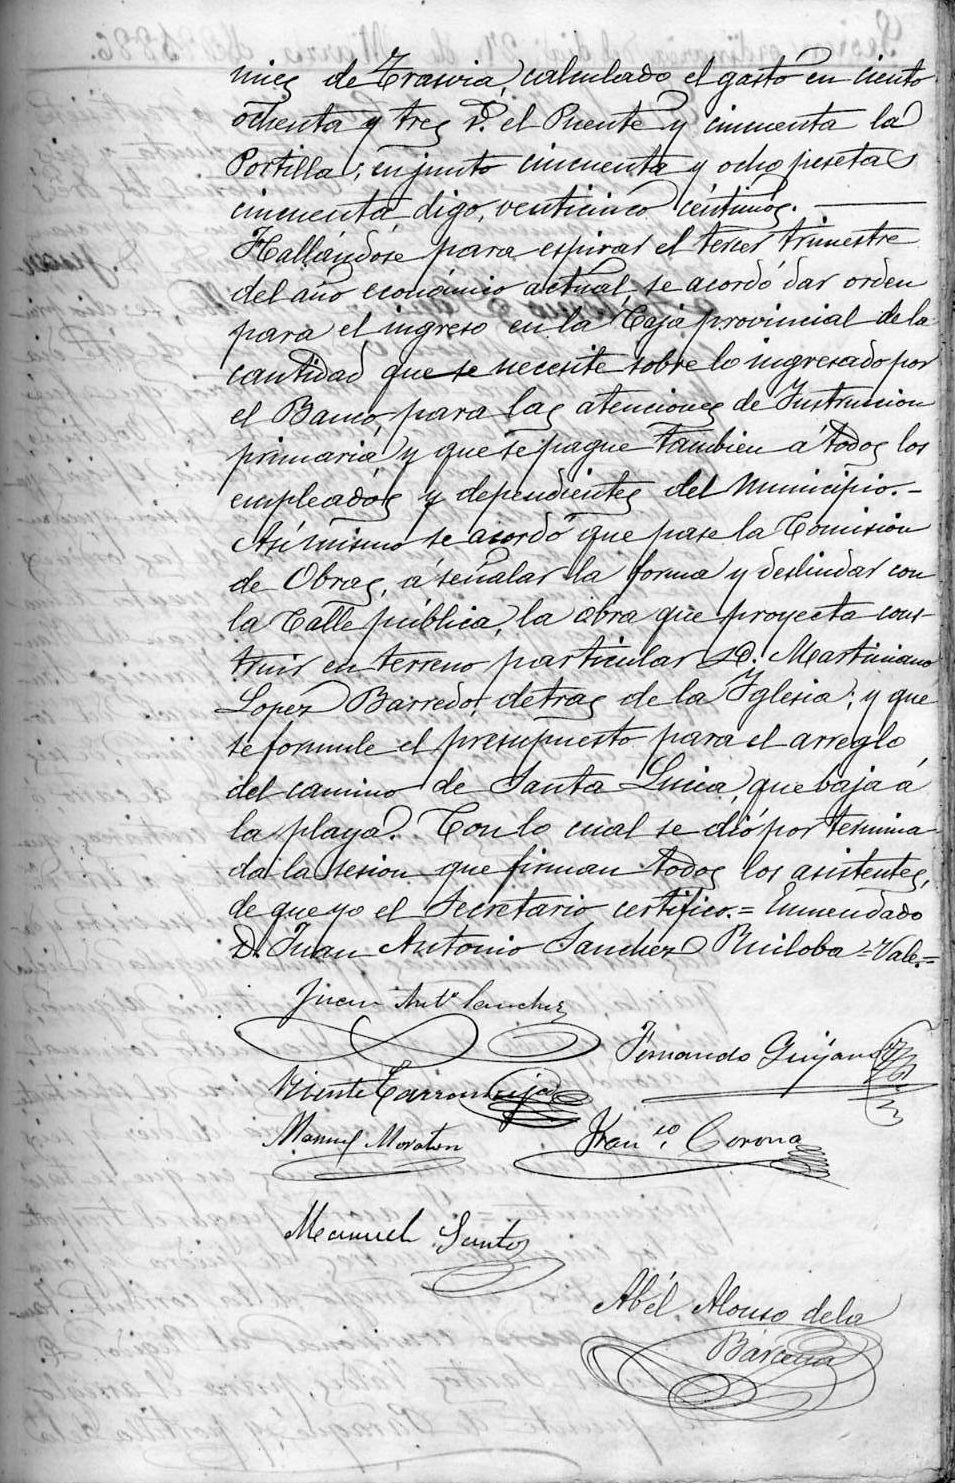 mies de Trasvia, calculado el gasto en ciento
ochenta y tres p.s el Puente y cincuenta la
Portilla; enjunto cincuenta y ocho pesetas
cincuenta, digo, venticinco céntimos.
Hallándose para espirar el tercer trimestre
del año económico actual, se acordó dar orden
para el ingreso en la Caja provincial de la
cantidad que se necesite sobre lo ingresado por
el Banco, para las atenciones de Instruccion
primaria, y que se pague tambien á todos los
empleados y dependientes del Municipio.-
Asi mismo se acordó que pase la Comision
de Obras, á señalar la forma y deslindar con
la Calle pública, la obra que proyecta cons-
truir en terreno particular D. Martiniano
Lopez Barredo, detras de la Iglesia; y que
se formule el presupuesto para el arreglo
del camino de Santa Lucia, que baja á
la playa. Con lo cual se dió por termina-
da la sesion que firman todos los asistentes,
de que yo el Secretario certifico.= Enmendado
D. Juan Antonio Sanchez Ruiloba = Vale.=
Juan Ant.o Sanchez
Fernando Quijano
Vicente
Manuel Moraton
Fran.co Corona
Manuel Santos
Abél Alonso de la
Bárcena